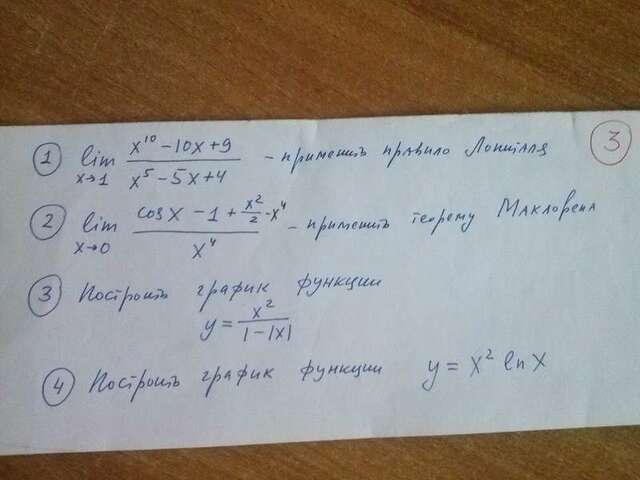 ③
① lim x→1 (x¹⁰ − 10x + 9)/(x⁵ − 5x + 4) – применить правило Лопиталя
② lim x→0 (cos x − 1 + x²/2 · x⁴)/x⁴ – применить теорему Маклорена
③ Построить график функции
y = x²/(1 − |x|)
④ Построить график функции y = x² ln x